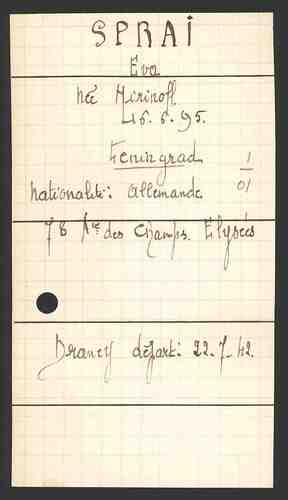 SPRAI
Eva
née Mirinoff
15.6.95.
Leningrad 1
nationalité: allemande. 01
78 Ave des Champs. Elysées
Drancy départ: 22-7-42.